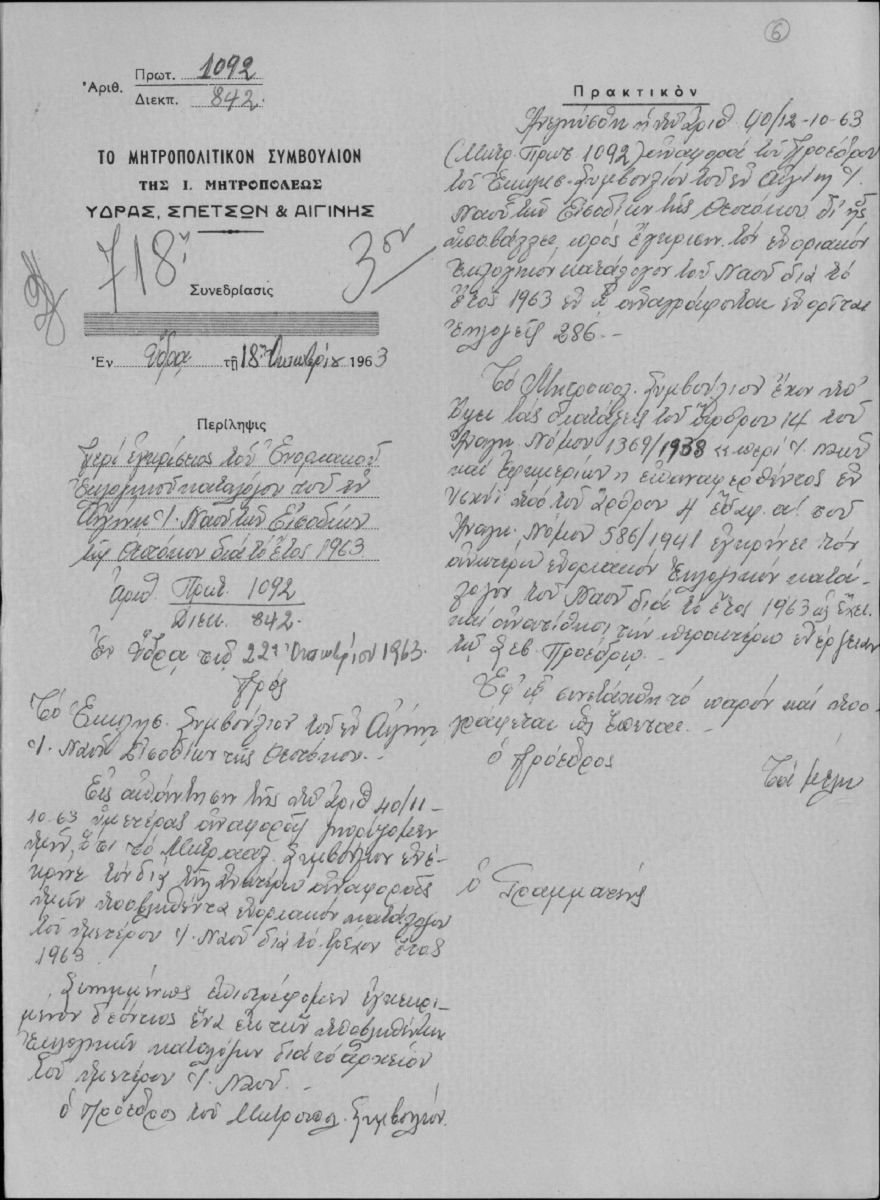 6
Ἀριθ. Πρωτ. 1092
Διεκπ. 842.
ΤΟ ΜΗΤΡΟΠΟΛΙΤΙΚΟΝ ΣΥΜΒΟΥΛΙΟΝ
ΤΗΣ Ι. ΜΗΤΡΟΠΟΛΕΩΣ
ΥΔΡΑΣ, ΣΠΕΤΣΩΝ & ΑΙΓΙΝΗΣ
718η 3ον
Συνεδρίασις
Ἐν Ὕδρᾳ τῇ 18ῃ Ὀκτωβρίου 1963
Περίληψις
Περὶ ἐγκρίσεως τοῦ Ἐνοριακοῦ
Ἐκλογικοῦ καταλόγου τοῦ ἐν
Αἰγίνῃ Ἱ. Ναοῦ τῶν Εἰσοδίων
τῆς Θεοτόκου διὰ τὸ ἔτος 1963
Ἀριθ. Πρωτ. 1092
Διεκ. 842.
Ἐν Ὕδρᾳ τῇ 22ᾳ Ὀκτωβρίου 1963.
Πρὸς
Τὸ Ἐκκλησ. Συμβούλιον τοῦ ἐν Αἰγίνῃ
Ἱ. Ναοῦ Εἰσοδίων τῆς Θεοτόκου.-
Εἰς ἀπάντησιν τῆς ὑπ' ἀριθ 40/11-
10-63 ὑμετέρας ἀναφορᾶς γνωρίζομεν
ὑμῖν, ὅτι τὸ Μητροπολ. Συμβούλιον ἐνέ-
κρινε τὸν διὰ τῆς ἀνωτέρω ἀναφορᾶς
ὑμῶν ὑποβληθέντα ἐνοριακὸν κατάλογον
τοῦ ὑμετέρου Ἱ. Ναοῦ διὰ τὸ τρέχον ἔτος
1963.
Συνημμένως ἐπιστρέφομεν ἐγκεκρι-
μένον δεόντως ἕνα ἐκ τῶν ὑποβληθέντων
Ἐκλογικῶν καταλόγων διὰ τὸ ἀρχεῖον
τοῦ ὑμετέρου Ἱ. Ναοῦ.-
Ὁ Πρόεδρος τοῦ Μητροπολ. Συμβουλίου.
Πρακτικὸν
Ἀνεγνώσθη ἡ ὑπ' ἀριθ 40/12-10-63
(Μητρ. Πρωτ 1092) ἀναφορὰ τοῦ Προέδρου
τοῦ Ἐκκλησ. Συμβουλίου τοῦ ἐν Αἰγίνῃ Ἱ.
Ναοῦ τῶν Εἰσοδίων τῆς Θεοτόκου δι' ἧς
ὑποβάλλει πρὸς ἔγκρισιν τὸν ἐνοριακὸν
Ἐκλογικὸν κατάλογον τοῦ Ναοῦ διὰ τὸ
ἔτος 1963 ἐν ᾧ ἀναγράφονται ἐνορῖται
Ἐκλογεῖς 286.-
Τὸ Μητροπολ. Συμβούλιον ἔχον ὑπ'
ὄψει τὰς διατάξεις τοῦ ἄρθρου 14 τοῦ
Ἀναγκ. Νόμου 1369/1938 "περὶ Ἱ. Ναῶν
καὶ Ἐφημερίων" ἐπαναφερθέντος ἐν
ἰσχύϊ ὑπὸ τοῦ ἄρθρου 4 ἐδαφ. α! τοῦ
Ἀναγκ. Νόμου 586/1941 ἐγκρίνει τὸν
ἀνωτέρω ἐνοριακὸν Ἐκλογικὸν κατά-
λογον τοῦ Ναοῦ διὰ τὸ ἔτος 1963 ὡς ἔχει
καὶ ἀνατίθησι τὴν περαιτέρω ἐνέργειαν
τῷ Σεβ. Προέδρῳ.-
Ἐφ' ᾧ συνετάχθη τὸ παρὸν καὶ ὑπο-
γράφεται ὡς ἕπεται.-
Ὁ Πρόεδρος
Τὰ μέλη
Ὁ Γραμματεὺς